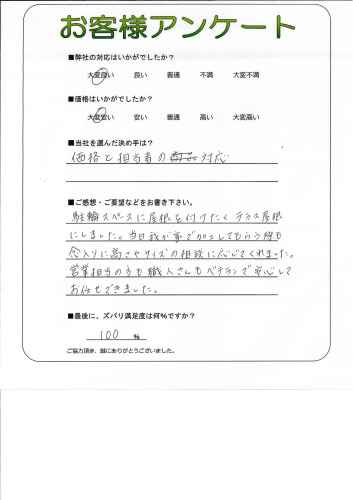 お客様アンケート
■弊社の対応はいかがでしたか？
大変良い 良い 普通 不満 大変不満
■価格はいかがでしたか？
大変安い 安い 普通 高い 大変高い
■当社を選んだ決め手は？
価格と担当者の対応
■ご感想・ご要望などをお書き下さい。
駐輪スペースに屋根を付けたくテラス屋根
にしました。当日我が家で加工してもらう際も
念入りに高さやサイズの相談に応じてくれました。
営業担当の方も職人さんもベテランで安心して
お任せできました。
■最後に、ズバリ満足度は何%ですか？
100 %
ご協力頂き、誠にありがとうございました。